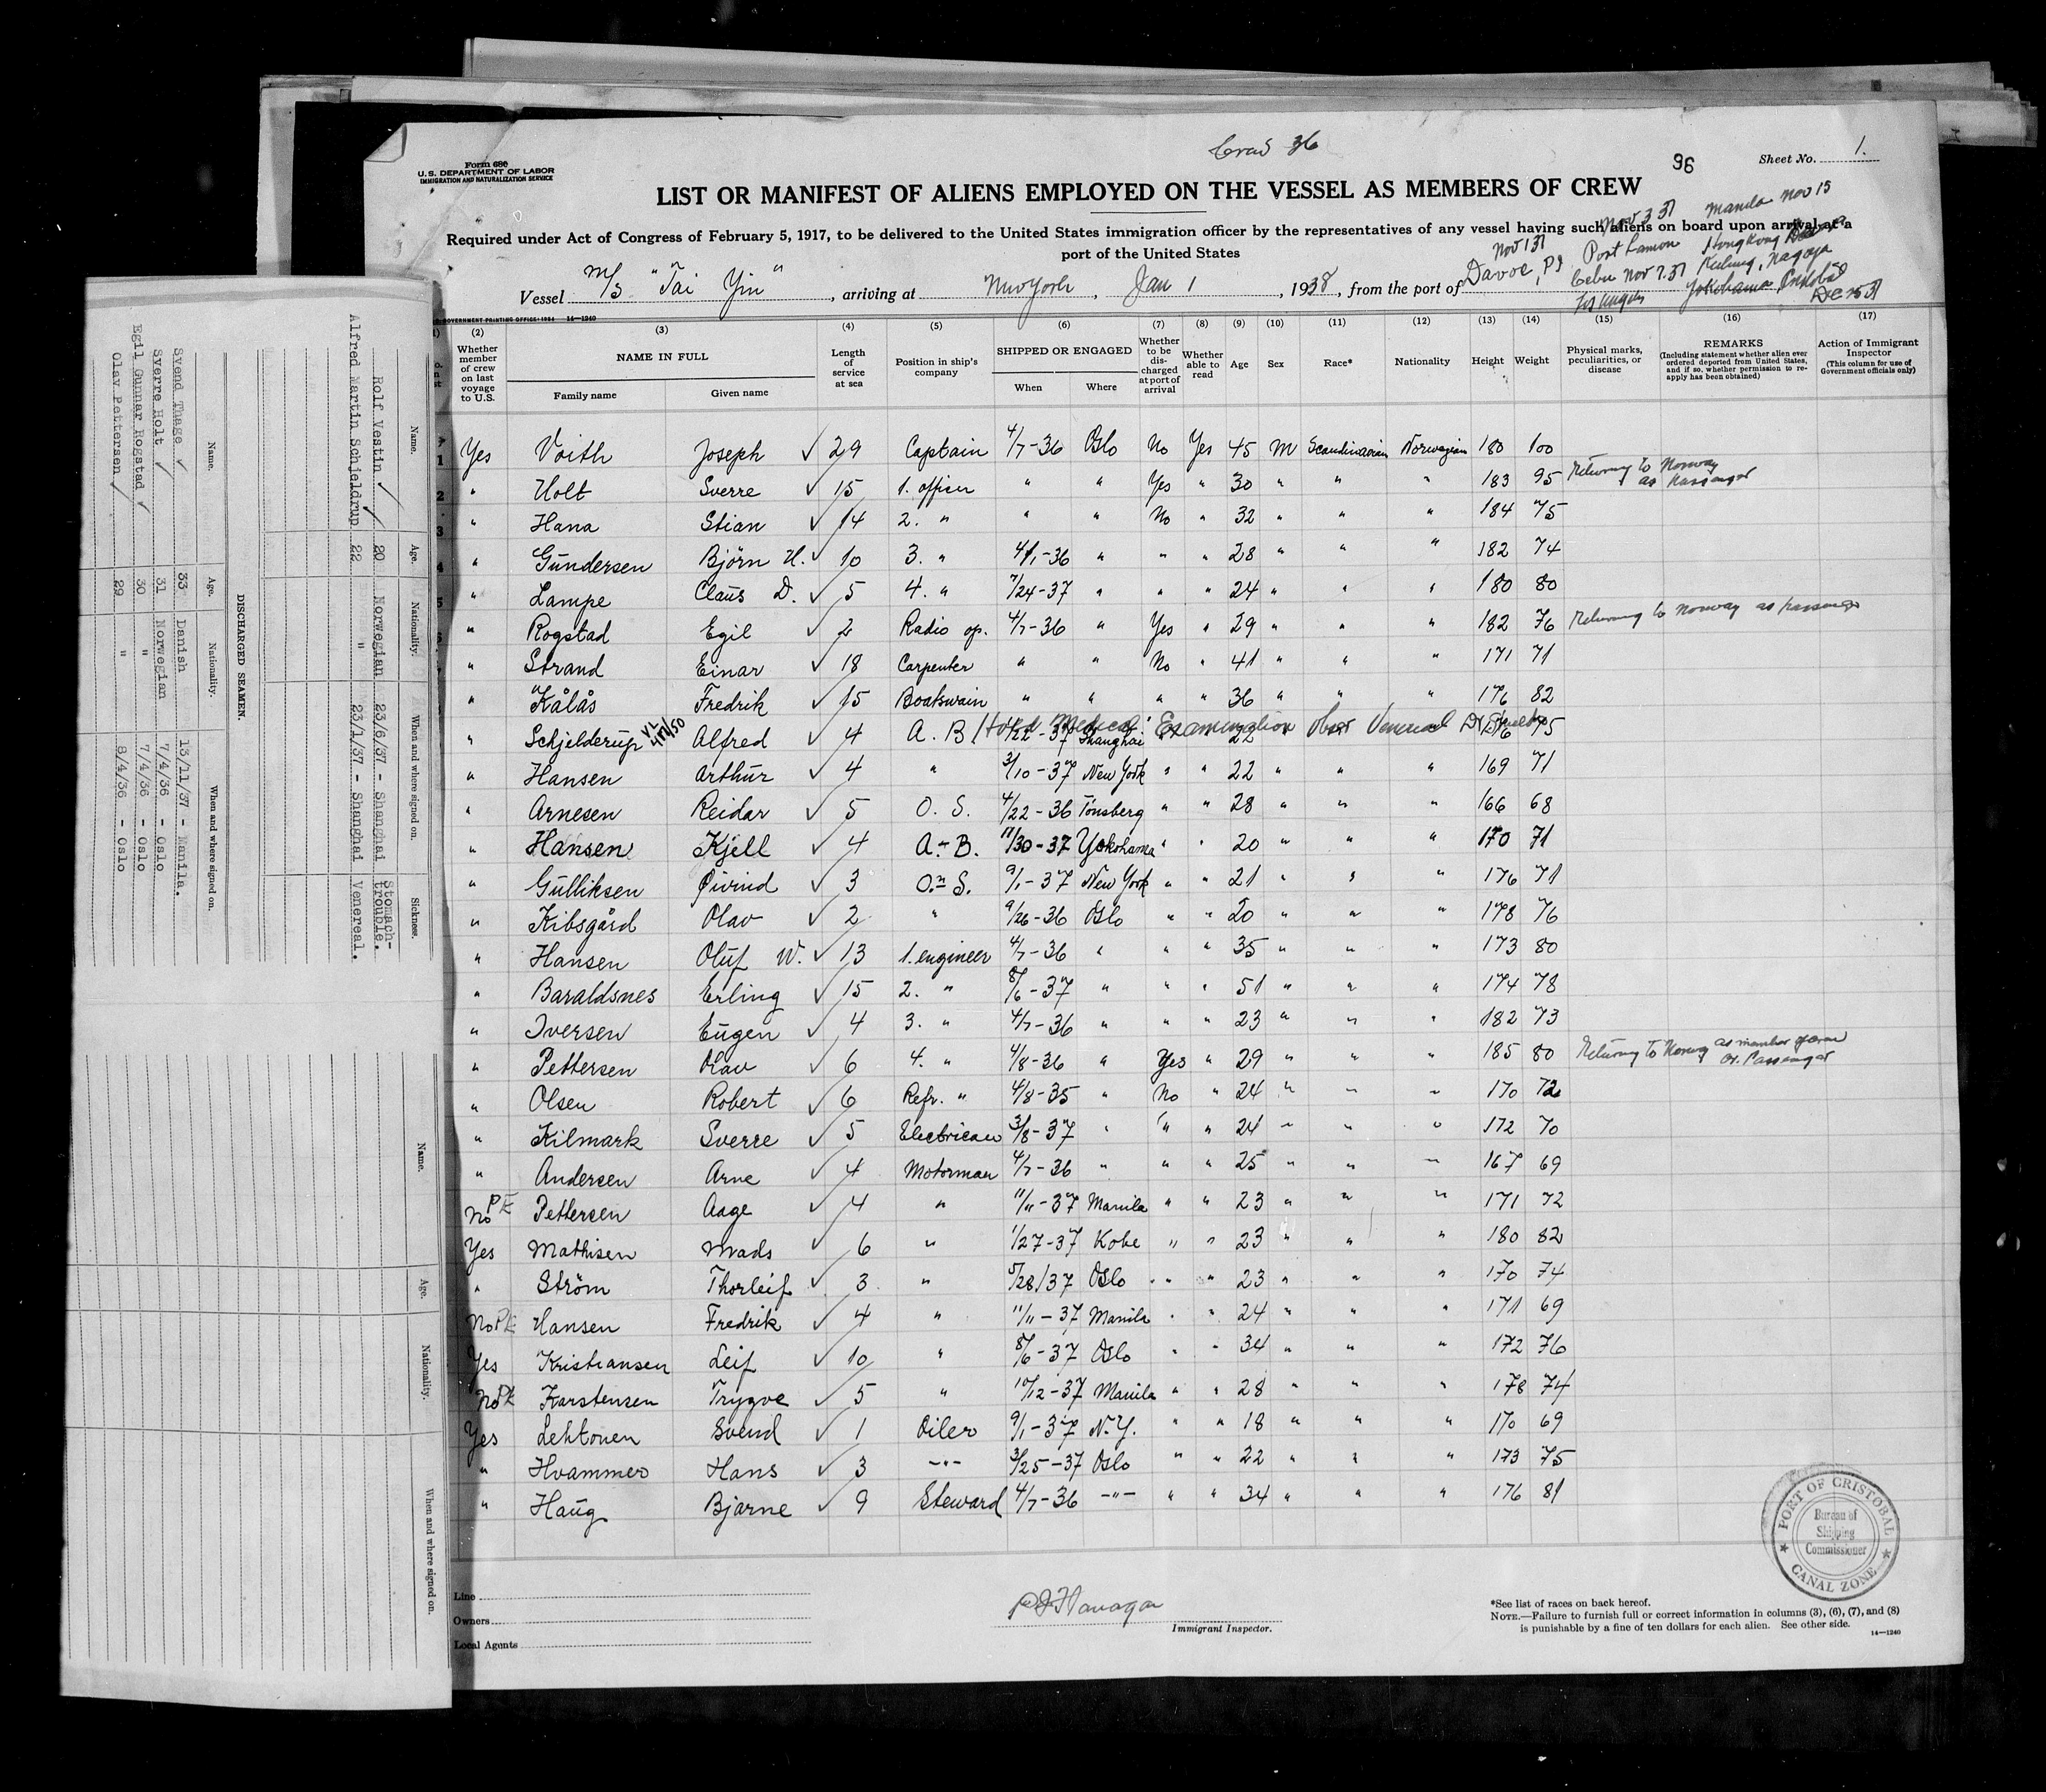 Form 680
U.S. DEPARTMENT OF LABOR
IMMIGRATION AND NATURALIZATION SERVICE
36
96
Sheet No. 1.
LIST OR MANIFEST OF ALIENS EMPLOYED ON THE VESSEL AS MEMBERS OF CREW
Required under Act of Congress of February 5, 1917, to be delivered to the United States immigration officer by the representatives of any vessel having such aliens on board upon arrival at a
port of the United States
Nov 3 37 Manila Nov 15
Nov 1 37 Port Hongkong
Davoe, PI Cebu Nov 7.37 Keelung, Nagoya
Los Angeles Yokohama Cristobal
Dec 25 37
Vessel M/S "Tai Yin", arriving at New York, Jan 1, 1938, from the port of
GOVERNMENT PRINTING OFFICE: 1934 14—1240
(2) (3) (4) (5) (6) (7) (8) (9) (10) (11) (12) (13) (14) (15) (16) (17)
Whether member of crew on last voyage to U.S. NAME IN FULL Family name Given name Length of service at sea Position in ship's company SHIPPED OR ENGAGED When Where Whether to be discharged at port of arrival Whether able to read Age Sex Race* Nationality Height Weight Physical marks, peculiarities, or disease REMARKS (Including statement whether alien ever ordered deported from United States, and if so, whether permission to reapply has been obtained) Action of Immigrant Inspector (This column for use of Government officials only)
1 Yes Voith Joseph ✓ 29 Captain 4/7-36 Oslo No Yes 45 M Scandinavian Norwegian 180 100
2 " Holt Sverre ✓ 15 1. officer " " Yes " 30 " " " 183 95 Returning to Norway as Passenger
3 " Hana Stian ✓ 14 2. " " " No " 32 " " " 184 75
4 " Gundersen Björn H. ✓ 10 3. " 4/1-36 " " " 28 " " " 182 74
5 " Lampe Claus D. ✓ 5 4. " 7/24-37 " " " 24 " " " 180 80
" Rogstad Egil ✓ 2 Radio op. 4/7-36 " Yes " 29 " " " 182 76 Returning to Norway as passenger
" Strand Einar ✓ 18 Carpenter " " No " 41 " " " 171 71
" Kålås Fredrik ✓ 15 Boatswain " " " " 36 " " " 176 82
" Schjelderup Alfred ✓ 4 A. B. Hold Medical Examination Venereal Shanghai 22 75
" Hansen Arthur ✓ 4 " 3/10-37 New York " " 22 " " " 169 71
" Arnesen Reidar ✓ 5 O. S. 4/22-36 Tönsberg " " 28 " " " 166 68
" Hansen Kjell ✓ 4 A. B. 11/30-37 Yokohama " " 20 " " " 170 71
" Gulliksen Öivind ✓ 3 O. S. 9/1-37 New York " " 21 " " " 176 71
" Kibsgård Olav ✓ 2 " 9/26-36 Oslo " " 20 " " " 178 76
" Hansen Oluf W. ✓ 13 1. engineer 4/7-36 " " " 35 " " " 173 80
" Baraldsnes Erling ✓ 15 2. " 8/6-37 " " " 51 " " " 174 78
" Iversen Eugen ✓ 4 3. " 4/7-36 " " " 23 " " " 182 73
" Pettersen Olav ✓ 6 4. " 4/8-36 " Yes " 29 " " " 185 80 Returning to Norway as member of crew or Passenger
" Olsen Robert ✓ 6 Refr. " 4/8-35 " No " 24 " " " 170 72
" Kilmark Sverre ✓ 5 Electrican 3/8-37 " " " 24 " " " 172 70
" Andersen Arne ✓ 4 Motorman 4/7-36 " " " 25 " " " 167 69
No PE Pettersen Aage ✓ 4 " 11/11-37 Manila " " 23 " " " 171 72
Yes Mathisen Mads ✓ 6 " 1/27-37 Kobe " " 23 " " " 180 82
" Ström Thorleif ✓ 3 " 5/28/37 Oslo " " 23 " " " 170 74
No PE Hansen Fredrik ✓ 4 " 11/11-37 Manila " " 24 " " " 171 69
Yes Kristiansen Leif ✓ 10 " 8/6-37 Oslo " " 34 " " " 172 76
No PE Karstensen Trygve ✓ 5 " 10/12-37 Manila " " 28 " " " 178 74
Yes Lehtonen Svend ✓ 1 Oiler 9/1-37 N.Y. " " 18 " " " 170 69
" Hvammer Hans ✓ 3 -"- 3/25-37 Oslo " " 22 " " " 173 75
" Haug Bjarne ✓ 9 Steward 4/7-36 -"- " " 34 " " " 176 81
PORT OF CRISTOBAL
Bureau of
Shipping
Commissioner
CANAL ZONE
Line
Owners
Local Agents
P J Flanagan
Immigrant Inspector.
*See list of races on back hereof.
NOTE.—Failure to furnish full or correct information in columns (3), (6), (7), and (8)
is punishable by a fine of ten dollars for each alien. See other side.
14—1240
Name. Age. Nationality. When and where signed on. Sickness.
Rolf Vestin ✓ 20 Norwegian 23/6/37 - Shanghai Stomach-trouble.
Alfred Martin Schjeldrup ✓ 22 " 23/1/37 - Shanghai Venereal.
DISCHARGED SEAMEN.
Name. Age. Nationality. When and where signed on.
Svend Thage ✓ 33 Danish 13/11/37 - Manila.
Sverre Holt ✓ 31 Norwegian 7/4/36 - Oslo
Egil Gunnar Rogstad ✓ 30 " 7/4/36 - Oslo
Olav Pettersen ✓ 29 " 8/4/36 - Oslo
Name. Age. Nationality. When and where signed on.